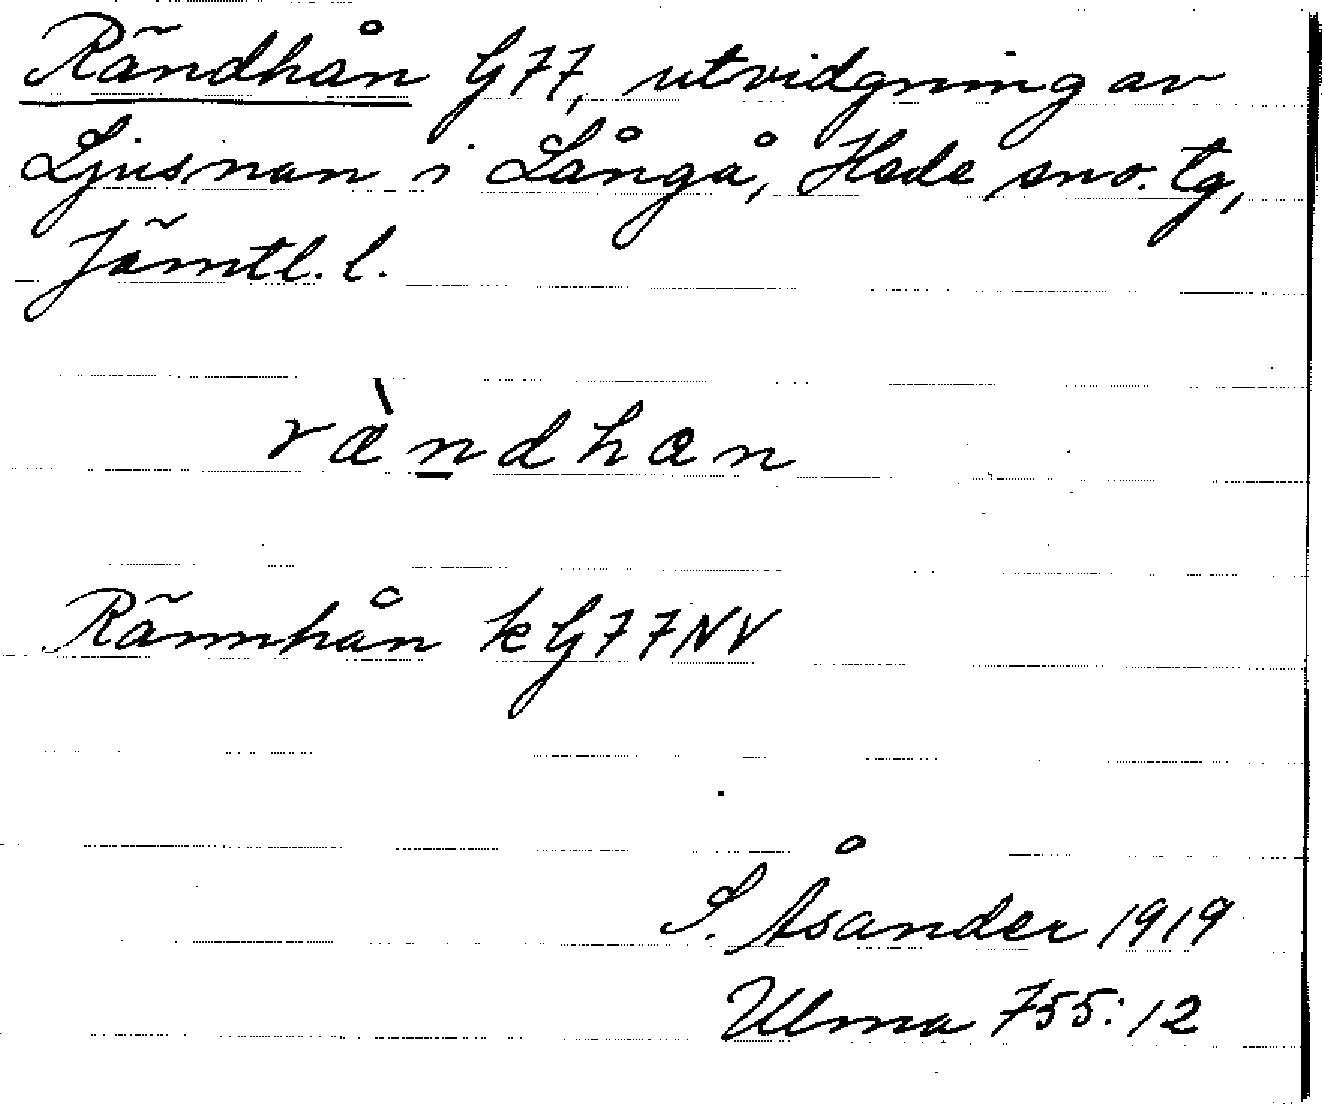 Rändhån G77, utvidgning av
Ljusnan i Långå, Hede sno. tg,
Jämtl. l.
ræ̀ndhæn
Rännhån k G77NV
S. Åsander 1919
Ulma 755:12